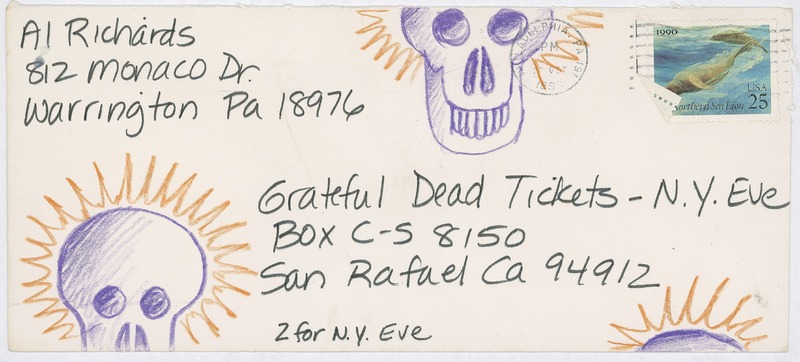 Al Richards
812 Monaco Dr.
Warrington Pa 18976
PM
1990
Northern Sea Lion
USA
25
Grateful Dead Tickets - N.Y. Eve
Box C-S 8150
San Rafael Ca 94912
2 for N.Y. Eve